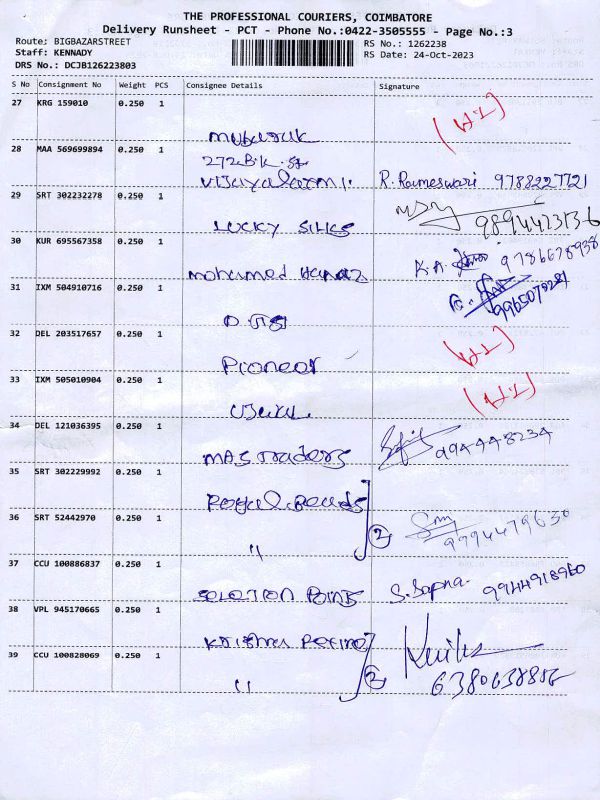 THE PROFESSIONAL COURIERS, COIMBATORE
Delivery Runsheet - PCT - Phone No.:0422-3505555 - Page No.:3
Route: BIGBAZARSTREET
Staff: KENNADY
DRS No.: DCJB126223803
RS No.: 1262238
RS Date: 24-Oct-2023
S No Consignment No Weight PCS Consignee Details Signature
27 KRG 159010 0.250 1
Mubaruk
28 MAA 569699894 0.250 1
272 B.K. St
Vijayalaxmi. R. Rameswari 9788227721
29 SRT 302232278 0.250 1
LUCKY SILKS 9894423136
30 KUR 695567358 0.250 1
Mohamed K.A. 9786678938
31 IXM 504910716 0.250 1
32 DEL 203517657 0.250 1
Pioneer
33 IXM 505010904 0.250 1
34 DEL 121036395 0.250 1
MAS Traders
35 SRT 302229992 0.250 1
Royal Beads
36 SRT 52442970 0.250 1
" 2 9994479630
37 CCU 100886837 0.250 1
POINT S. Sapna. 9944918960
38 VPL 945170665 0.250 1
Krishna
39 CCU 100828069 0.250 1
" 2 6380638856